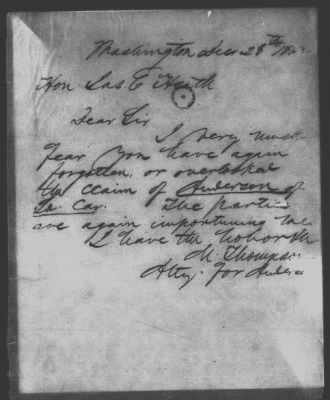 Washington Dec 28th
Hon Jas E Heath
Dear Sir
I very much
fear you have again
forgotten or overlooked
the claim of Anderson of
So. Car. The parties
are again importuning me
I have the honor
M Thompson
Atty. for Anderson